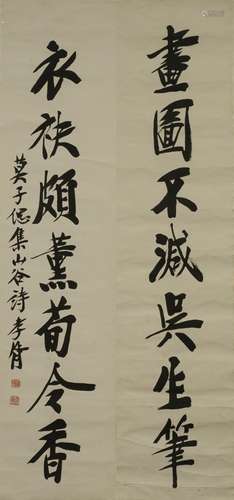 畫圖不減吳生筆
衣袂頗薰荀令香
莫子偲集山谷詩孝胥